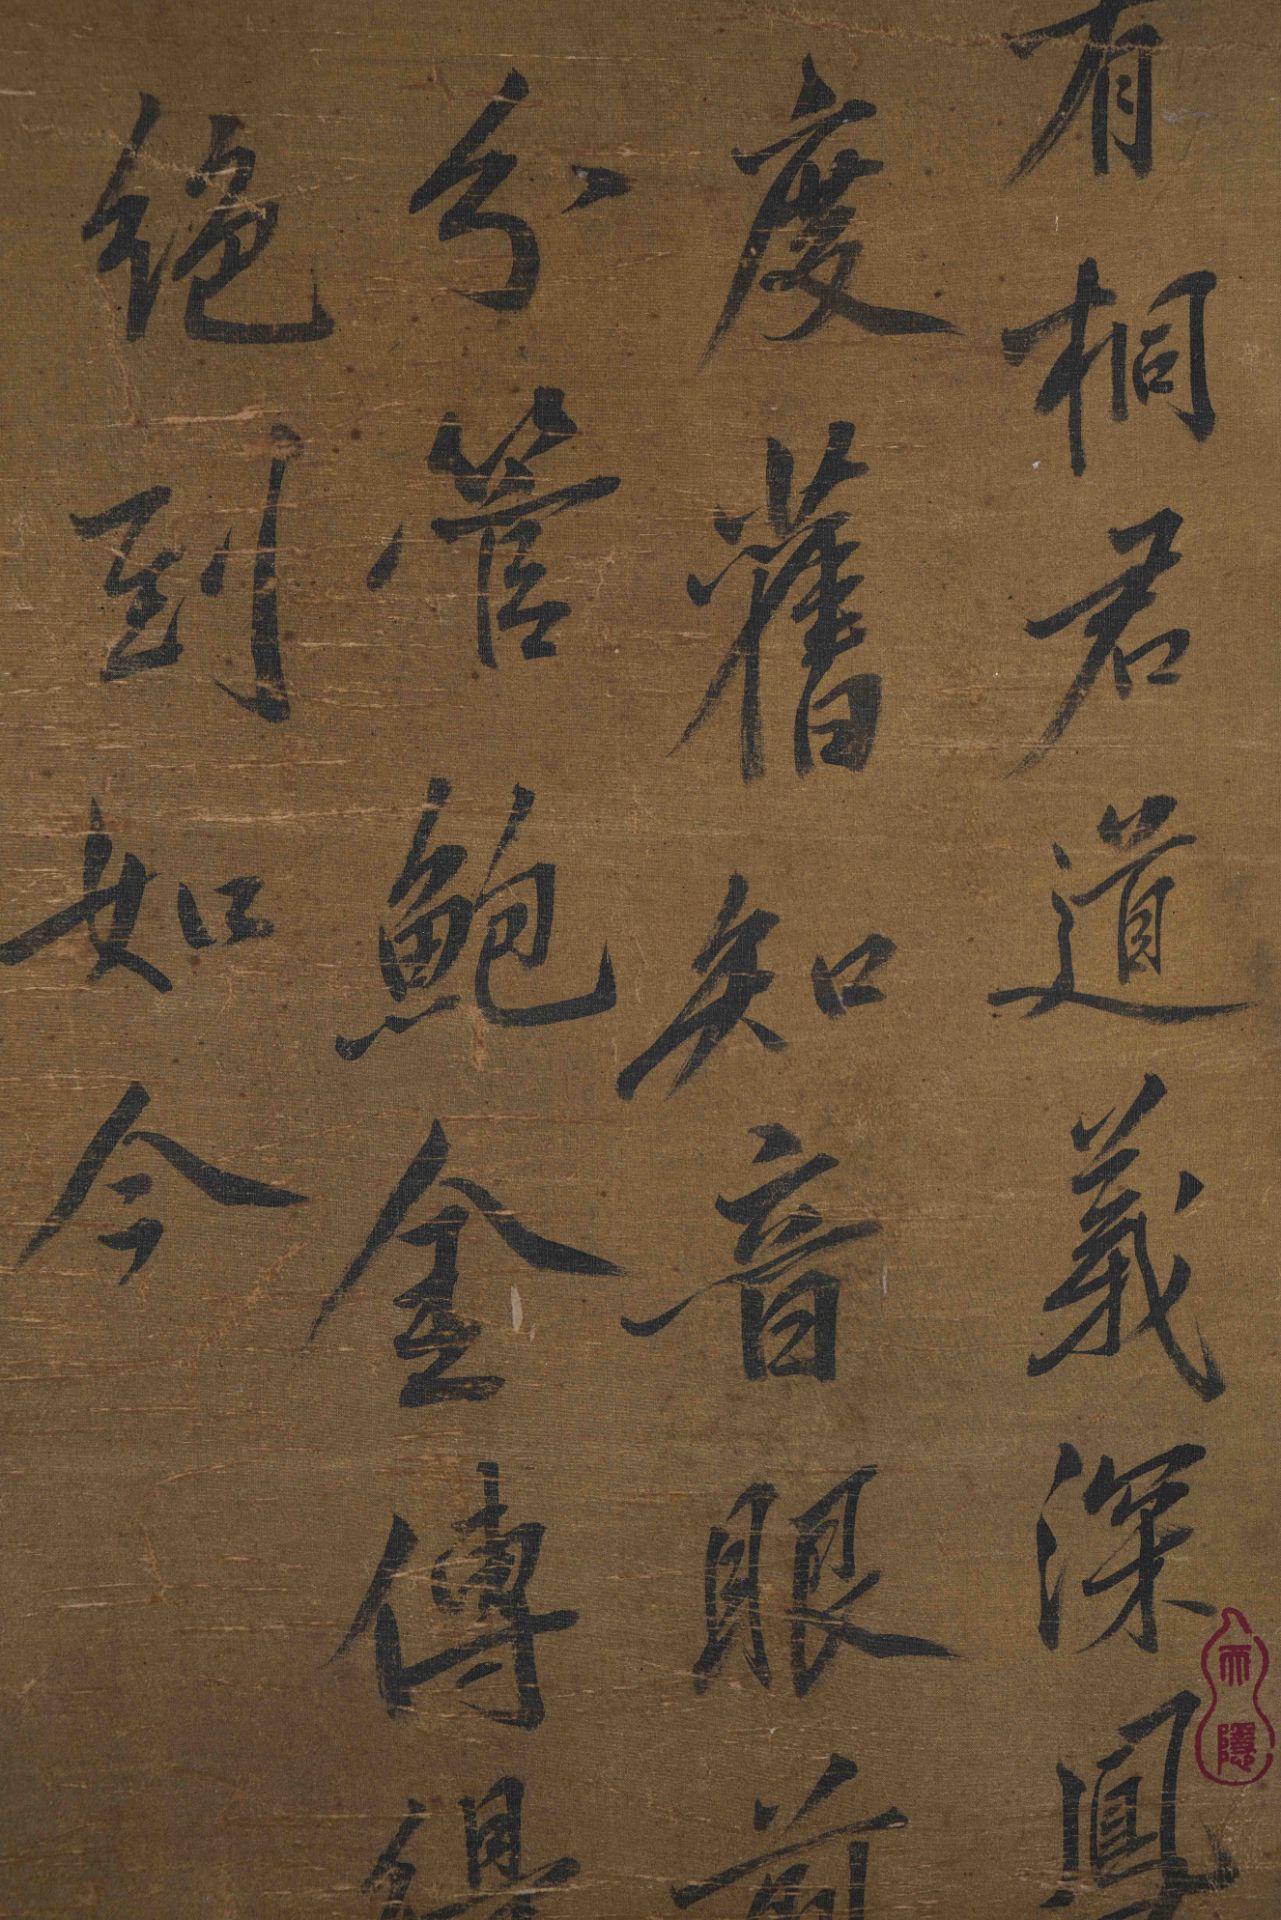 有桐君道義深鳳
度舊知音眼前
分管鮑金傳得
絕到如今
天隱